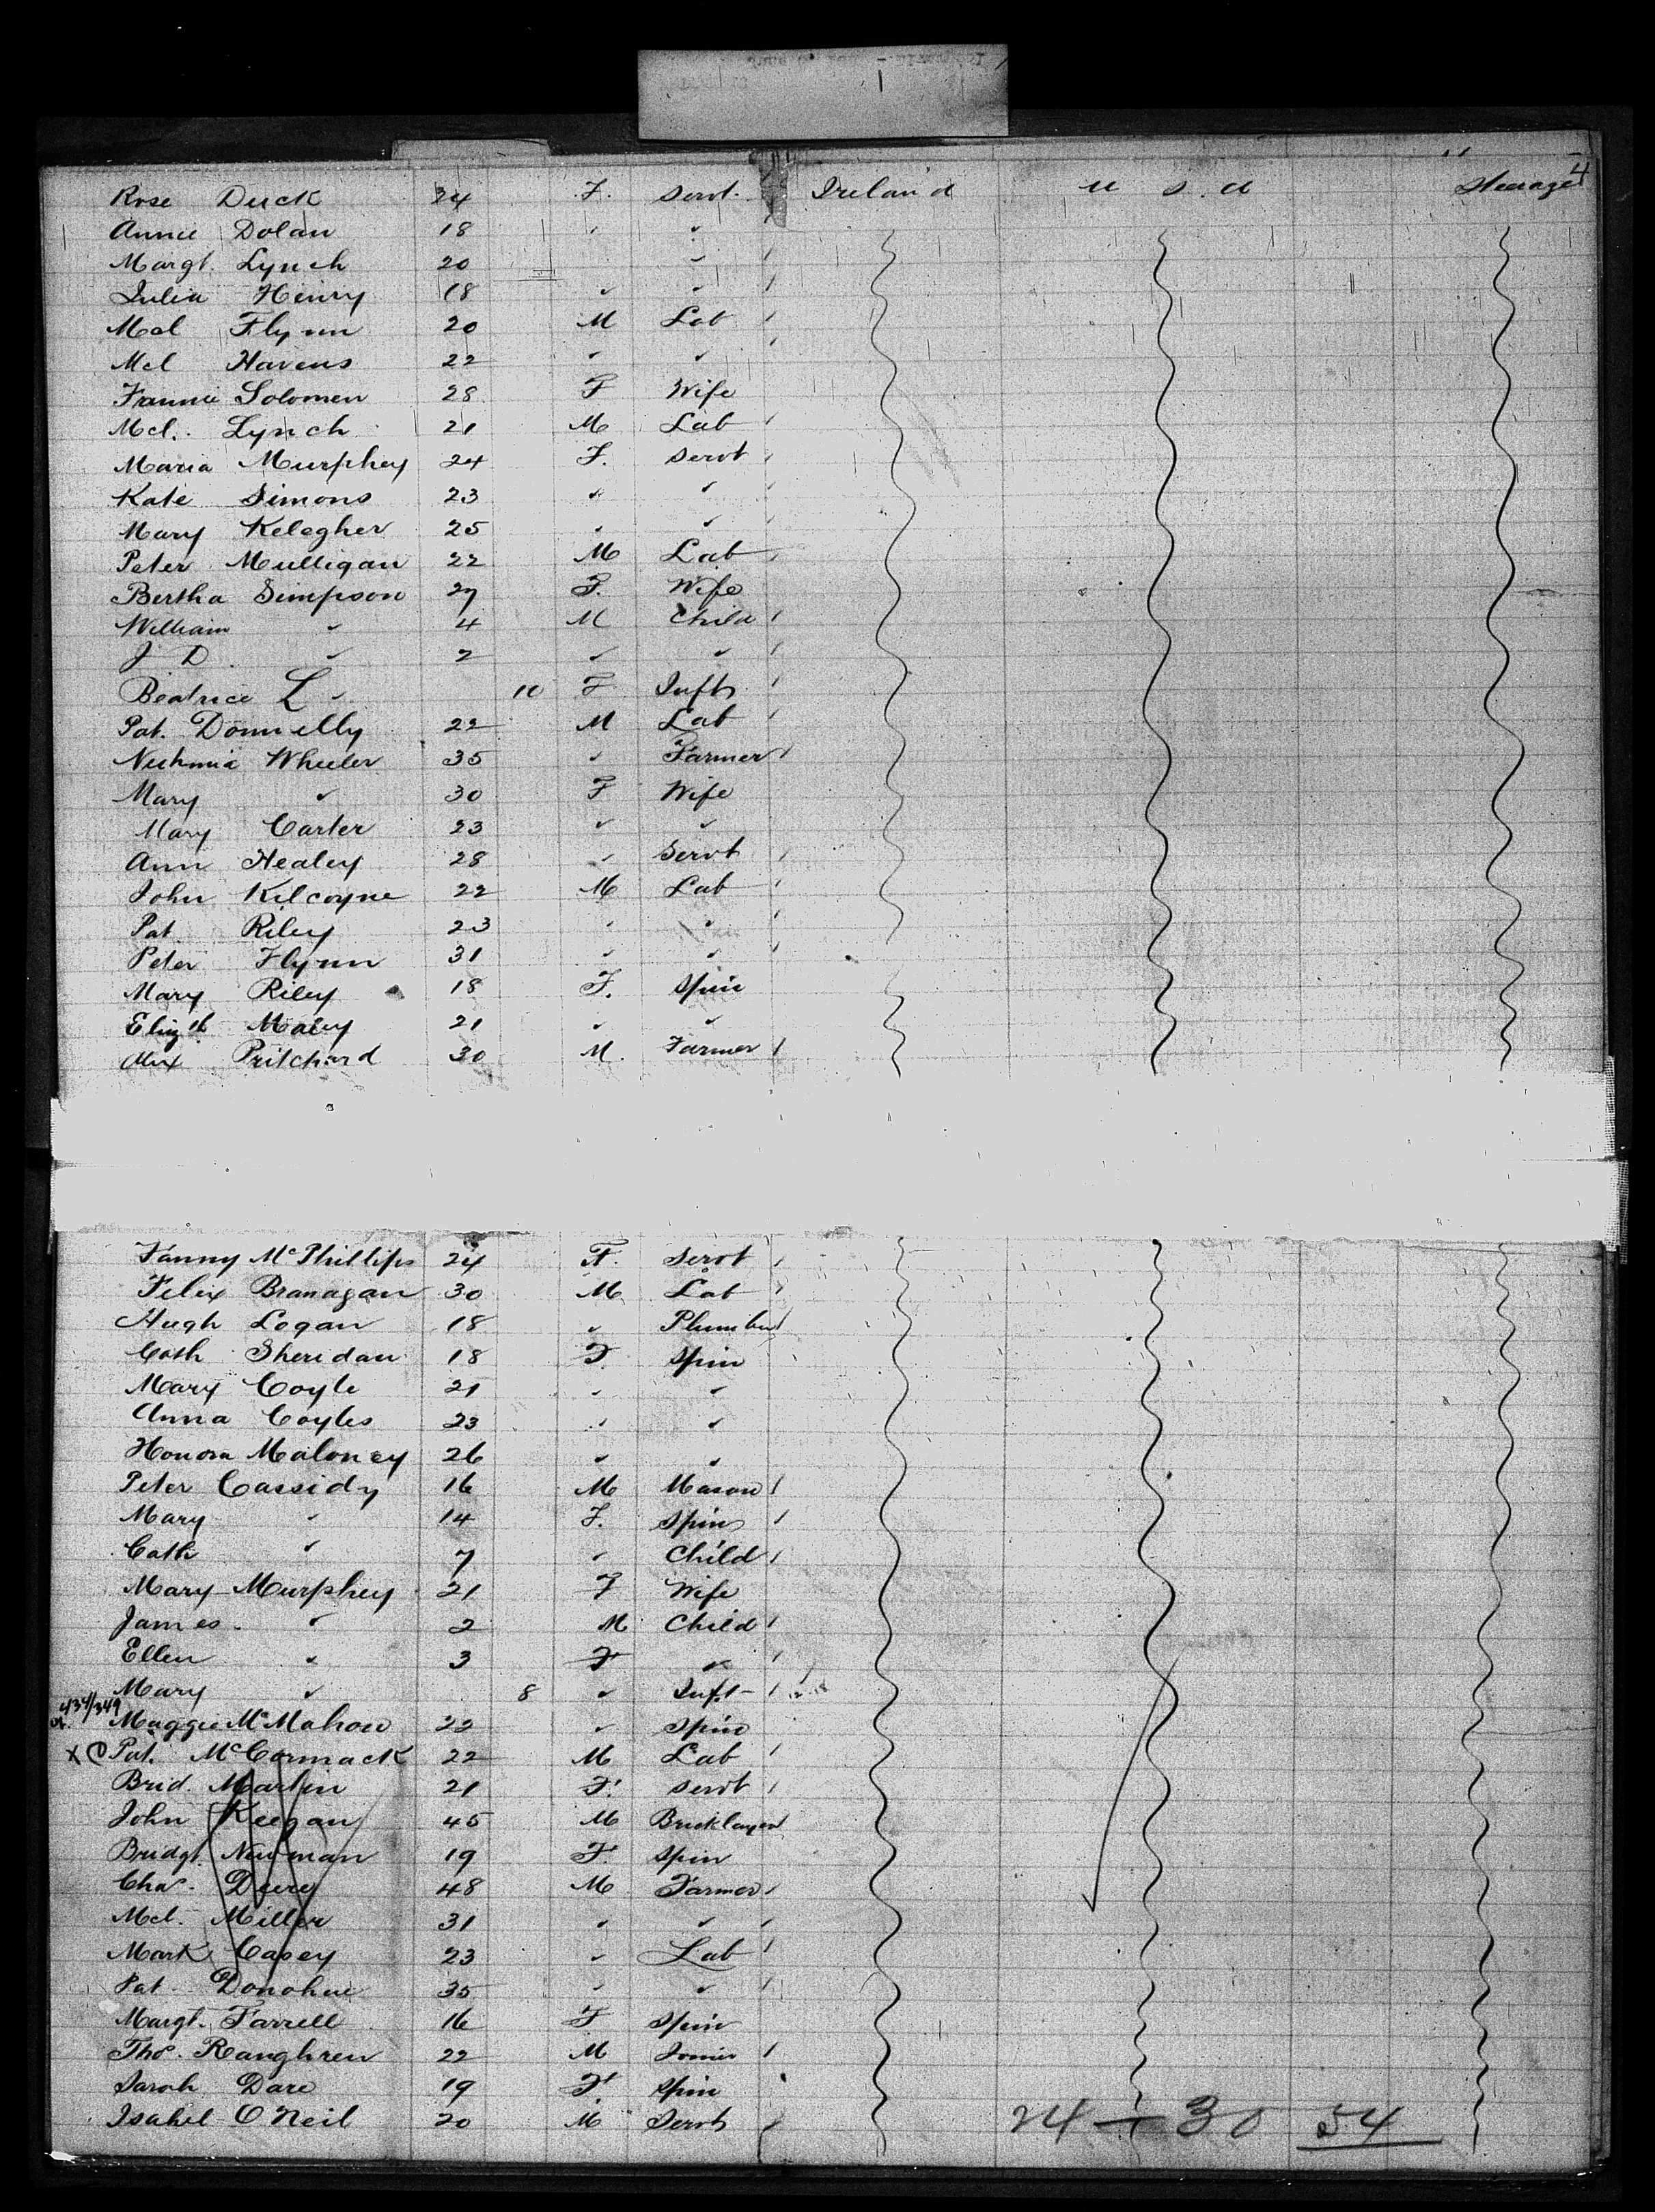 4
Rose Duck 24 F. Servt. Ireland U S. A Steerage
Annie Dolan 18 " "
Margt. Lynch 20 "
Julia Henry 18 " "
Mcl Flynn 20 M Lab
Mcl Havens 22 " "
Fannie Solomen 28 F Wife
Mcl. Lynch 21 M Lab
Maria Murphey 24 F. Servt
Kate Simons 23 " "
Mary Kelegher 25 " "
Peter Mulligan 22 M Lab
Bertha Simpson 27 F. Wife
William " 4 M Child
J D " 2 " "
Beatrice L " 10 F Inft
Pat. Donnelly 22 M Lab
Nuhmia Wheeler 35 " Farmer
Mary " 30 F Wife
Mary Carter 23 " "
Ann Healey 28 " Servt
John Kilcoyne 22 M Lab
Pat Riley 23 " "
Peter Flynn 31 " "
Mary Riley 18 F. Spin
Elizth 21 " "
Alex Pritchard 30 M. Farmer
Fanny McPhillips 24 F. Servt
Felix Branagan 30 M Lab
Hugh Logan 18 " Plumber
Cath Sheridan 18 F. Spin
Mary Coyle 21 " "
Anna Coyles 23 " "
Honora Maloney 26 " "
Peter Cassidy 16 M Mason
Mary " 14 F. Spin
Cath " 7 " Child
Mary Murphey 21 F Wife
James " 2 M Child
Ellen " 3 F "
Mary " 8 " Inft
434/349
Maggie McMahon 22 " Spin
X Pat. McCormack 22 M Lab
Brid. Martin 21 F. Servt
John Keegan 45 M Bricklayer
Bridgt. Newman 19 F. Spin
Chas. 48 M Farmer
Mcl. Miller 31 " "
Mark Casey 23 " Lab
Pat Donohue 35 " "
Margt. Farrell 16 F Spin
Thos. Ranghren 22 M Joiner
Sarah Dare 19 F Spin
Isabel O'Neil 20 M Servt
24 - 30 54